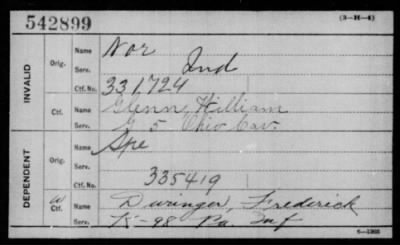 542899 (3-H-4)
INVALID
Orig. Name Nor
Serv. Ind
Ctf. No. 331,724
Ctf. Name Glenn, William
Serv. G 5 Ohio Cav.
DEPENDENT
Orig. Name Spe
Serv.
Ctf. No. 335419
W Ctf. Name Duringer, Frederick
Serv. K-98 Pa. Inf